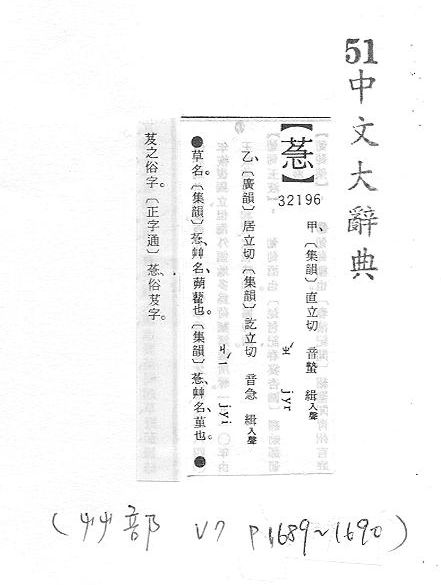 51
中文大辭典
【䓛】
32196
甲、〔集韻〕直立切 音蟄 緝入聲
ㄓˊ jyr
乙、〔廣韻〕居立切〔集韻〕訖立切 音急 緝入聲
ㄐㄧˊ jyi
●草名。〔集韻〕䓛、艸名、蒴藋也。〔集韻〕䓛、艸名、菫也。●
芨之俗字。〔正字通〕䓛、俗芨字。
(艸部 V7 P1689~1690)